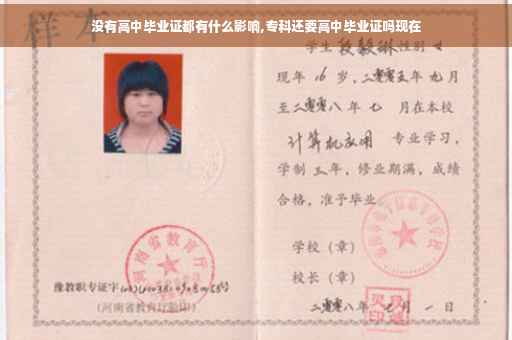 样本
没有高中毕业证都有什么影响,专科还要高中毕业证吗现在
学生 段毅琳 性别 女
现年 16 岁,二零零五年 九月
至二零零八年 七 月在本校
计算机应用 专业学习,
学制 三 年,修业期满,成绩
合格,准予毕业
学校（章）
校长（章）
二零零八年 七 月 一 日
河南省教育厅
豫教职专证字
（河南省教育厅验印）